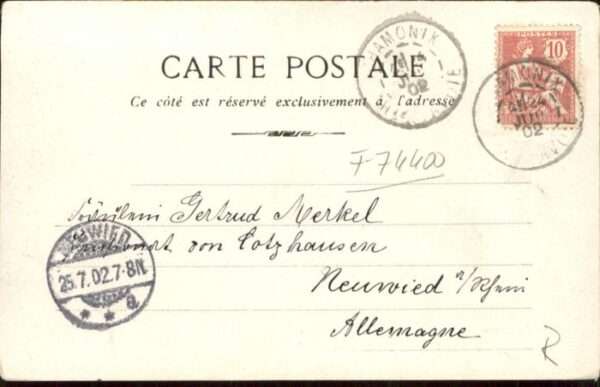 CHAMONIX
SAVOIE
JUIL
02
POSTES
10
CHAMONIX
24
JUIL
02
CARTE POSTALE
Ce côté est réservé exclusivement à l'adresse
F-74400
Fräulein Gertrud Merkel
von Lotzhausen
NEUWIED
25.7.02.7-8N.
* * a.
Neuwied a/Rhein
Allemagne
R